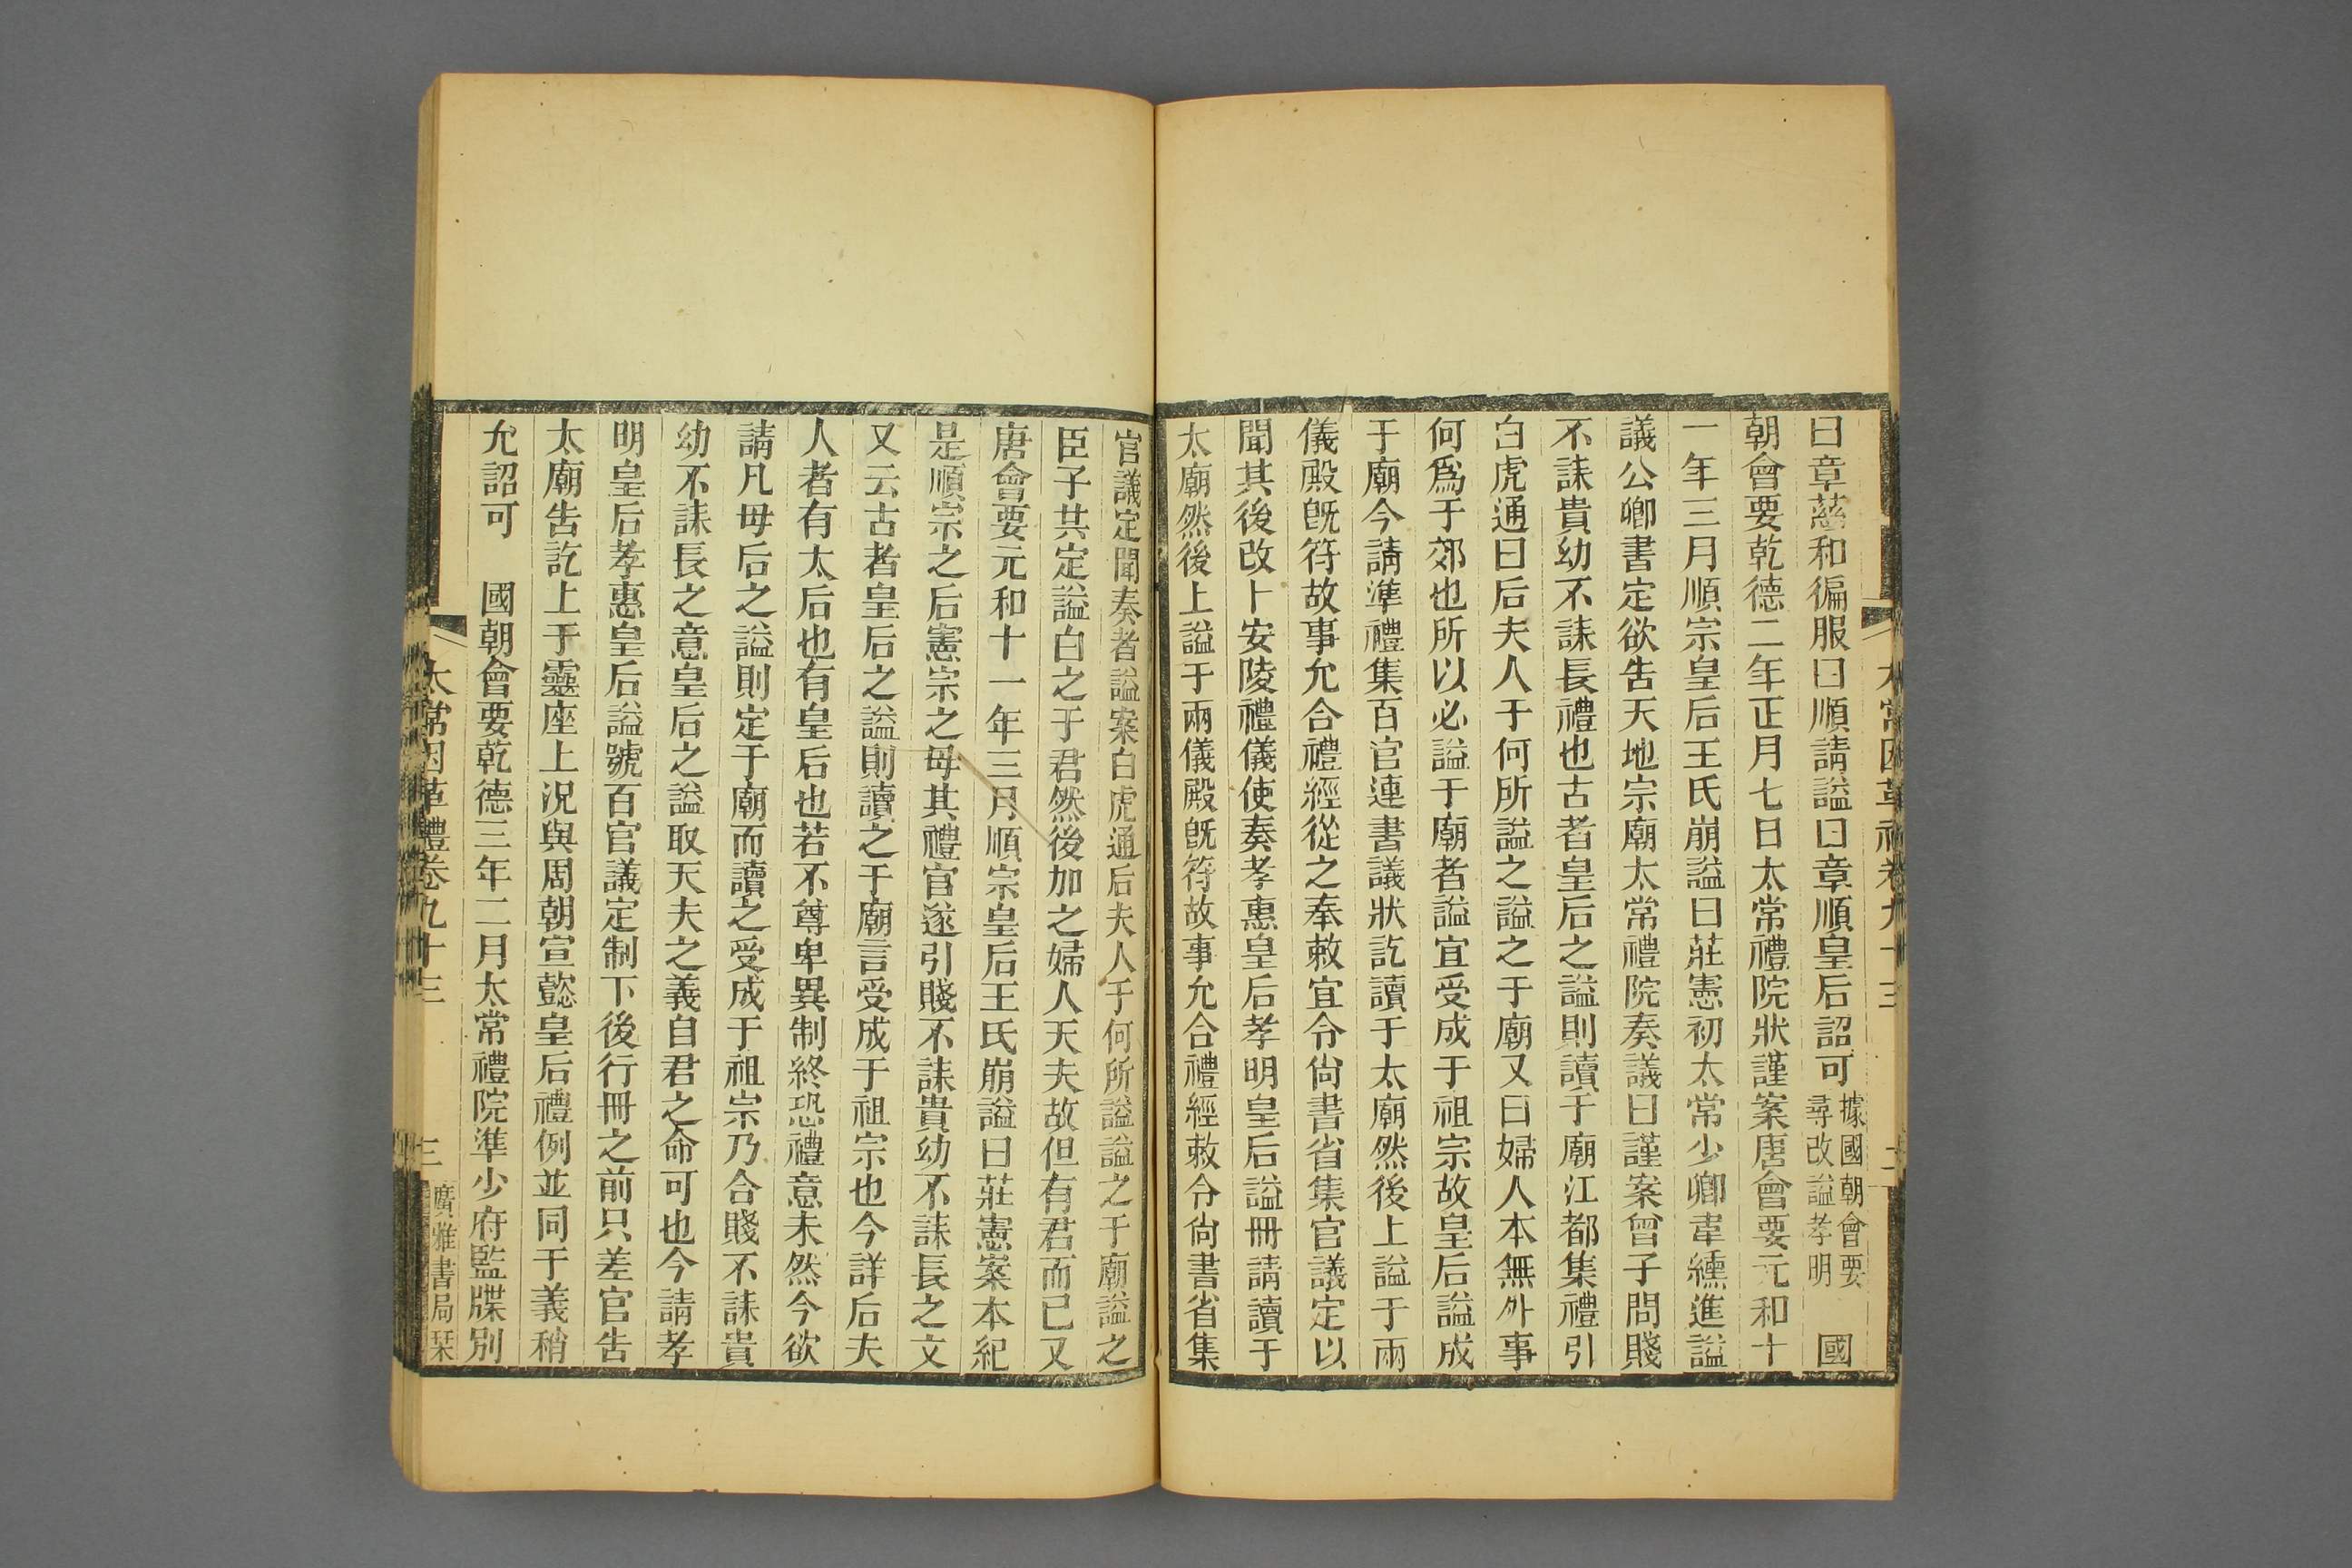 曰章慈和徧服曰順請謚曰章順皇后詔可據國朝會要尋改謚孝明　國
朝會要乾德二年正月七日太常禮院狀謹案唐會要元和十
一年三月順宗皇后王氏崩謚曰莊憲初太常少卿韋纁進謚
議公卿書定欲告天地宗廟太常禮院奏議曰謹案曾子問賤
不誄貴幼不誄長禮也古者皇后之謚則讀于廟江都集禮引
白虎通曰后夫人于何所謚之謚之于廟又曰婦人本無外事
何爲于郊也所以必謚于廟者謚宜受成于祖宗故皇后謚成
于廟今請準禮集百官連書議狀訖讀于太廟然後上謚于兩
儀殿旣符故事允合禮經從之奉敕宜令尙書省集官議定以
聞其後改卜安陵禮儀使奏孝惠皇后孝明皇后謚冊請讀于
太廟然後上謚于兩儀殿旣符故事允合禮經敕令尙書省集
官議定聞奏者謚案白虎通后夫人于何所謚謚之于廟謚之
臣子共定謚白之于君然後加之婦人天夫故但有君而已又
唐會要元和十一年三月順宗皇后王氏崩謚曰莊憲案本紀
是順宗之后憲宗之母其禮官遂引賤不誄貴幼不誄長之文
又云古者皇后之謚則讀之于廟言受成于祖宗也今詳后夫
人者有太后也有皇后也若不尊卑異制終恐禮意未然今欲
請凡母后之謚則定于廟而讀之受成于祖宗乃合賤不誄貴
幼不誄長之意皇后之謚取天夫之義自君之命可也今請孝
明皇后孝惠皇后謚號百官議定制下後行冊之前只差官告
太廟告訖上于靈座上況與周朝宣懿皇后禮例並同于義稍
允詔可　國朝會要乾德三年二月太常禮院準少府監牒別
太常因革禮卷九十三　三　廣雅書局栞